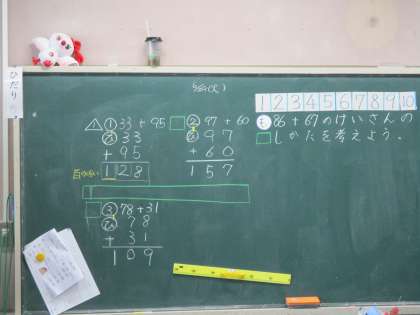 ひだり
1 2 3 4 5 6 7 8 9 10
① 33+95
33
+95
128
② 97+60
97
+60
157
86+67のけいさんの
しかたを考えよう。
③ 78+31
78
+31
109